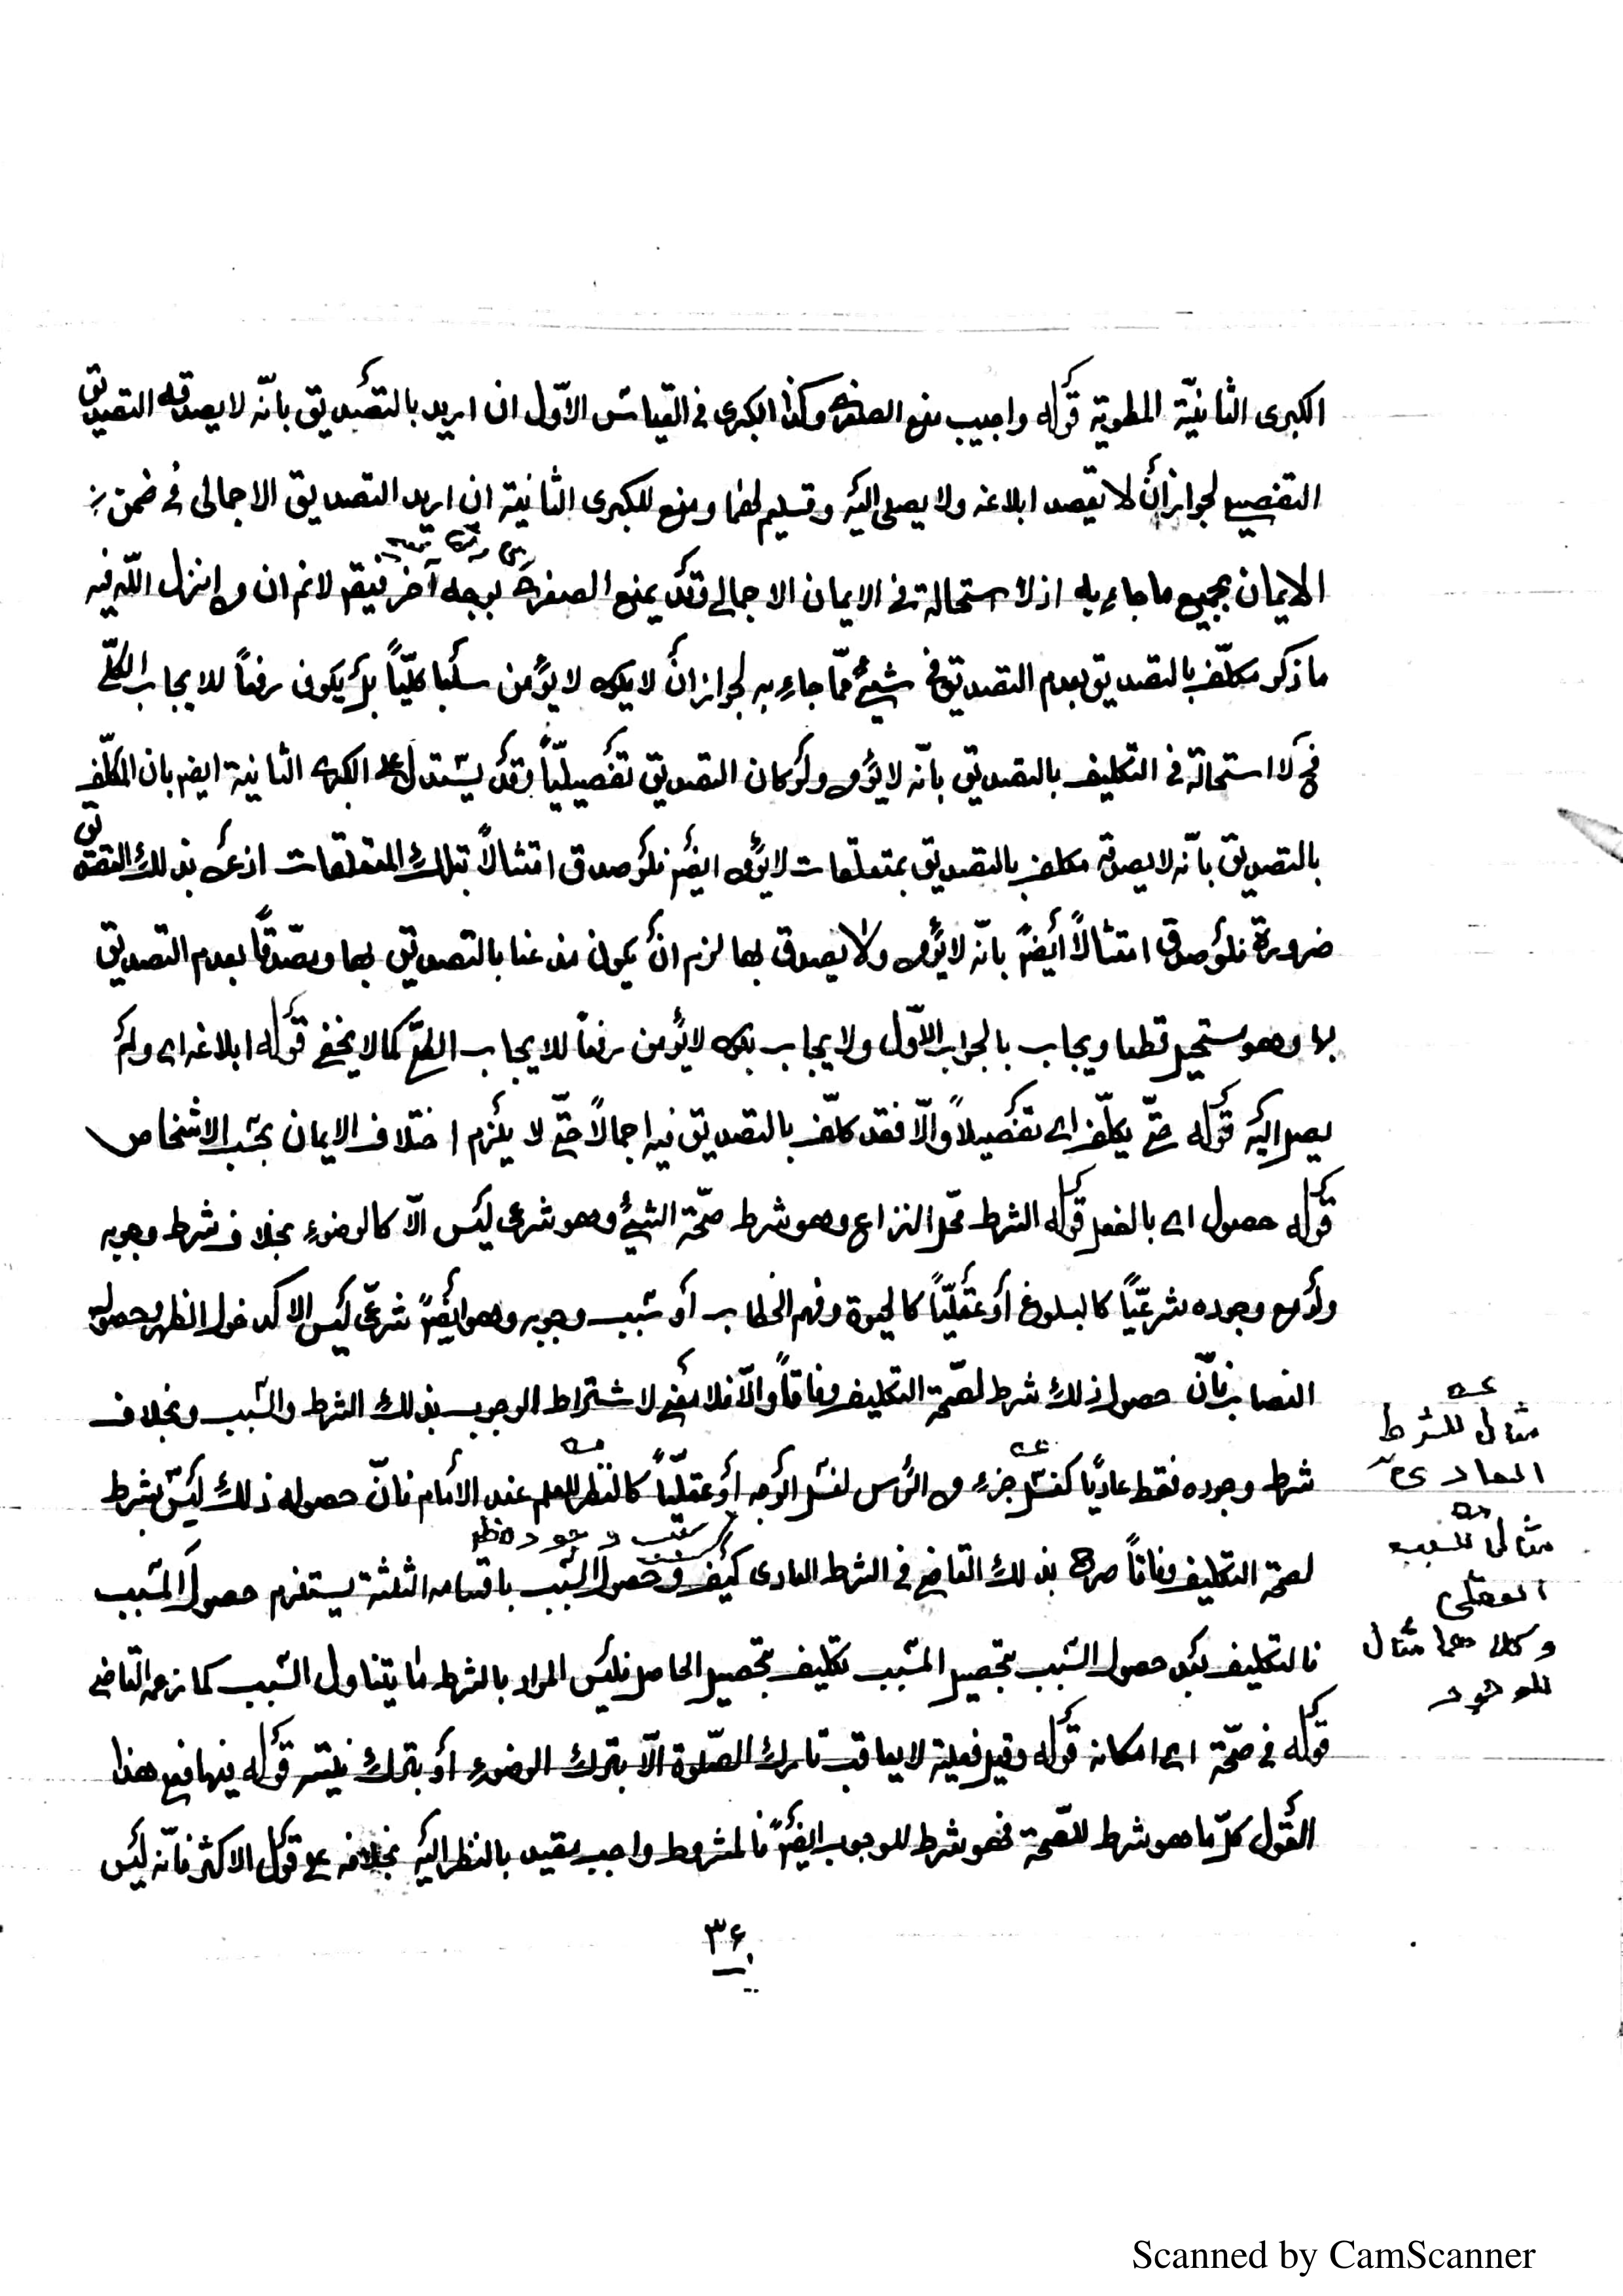 الكبرى الثانيّة المطوية قوله واجيب بمنع الصغرى وكذا الكبرى في القياس الاوّل ان اريد بالتصديق بانّه لا يصدقه التصديق
التفصيلي لجواز ان لا يقصد ابلاغه ولا يصل اليه وتسليم لهما ومنع للكبرى الثانية ان اريد التصديق الاجمالى في ضمن
الايمان بجميع ما جاء به اذ لا استحالة في الايمان الاجمالي وقد يمنع الصغرى بوجه آخر فيقم لانم ان من انزل اللّه فيه
ما ذكر مكلّف بالتصديق بعدم التصديق في شيئ ممّا جاء به لجواز ان لا يكون لا يؤمن سلبا كليّاً بل يكون رفعاً للايجاب الكلّي
فح لا استحالة في التكليف بالتصديق بانّه لا يؤمن ولو كان التصديق تفصيليّاً وقد يستدل على الكبرى الثانية ايضم بان المكلّف
بالتصديق بانّه لا يصدقه مكلف بالتصديق بمتعلقات لا يؤمن ايضم فلو صدق امتثالاً بتلك المتعلقات اذعن بذلك التصديق
ضرورة فلو صدق امتثالاً ايضم بانّه لا يؤمن ولا يصدق بها لزم ان يكون مذعنا بالتصديق بها ومصدّقاً بعدم التصديق
بها وهو مستحيل قطعا ويجاب بالجواب الاوّل ولا يجاب بكون لا يؤمن رفعاً للايجاب الكلّي كما لا يخفى قوله ابلاغه اى ولم
يصل اليه قوله حتّى يكلّف اى تفصيلاً والّا فقد كلّف بالتصديق فيه اجمالاً حتّى لا يلزم اختلاف الايمان بحسب الاشخاص
قوله حصول اى بالفعل قوله الشرط محل النزاع وهو شرط صحّة الشيئ وهو شرعى ليس الّا كالوضوء بخلاف شرط وجوبه
ولو مع وجوده شرعيّاً كالبلوغ أو عقليّاً كالحيوة وفهم الخطاب أو سبب وجوبه وهو ايضم شرعيّ ليس الا كدخول الظهر وحصول
النصاب فانّ حصول ذلك شرط لصحّة التكليف وفاقاً والّا فلا معنى لاشتراط الوجوب بذلك الشرط والسّبب وبخلاف
شرط وجوده فقط عاديّا كغسل جزء من الرأس لغسل الوجه أو عقليّاً كالنظر للعلم عند الأمام فانّ حصوله ذلك ليس بشرط
لصحة التكليف وفاقاً صرح بذلك القاضي في الشرط العادى كيف وحصول السّبب باقسامه الثلثة يستلزم حصول المسّبب
فالتكليف بعد حصول السّبب بتحصيل المسّبب تكليف بتحصيل الحاصل فليس المراد بالشرط ما يتناول السّبب كما زعمه القاضي
قوله في صحّة اى امكانه قوله وقيل فعلية لا يعاقب تارك الصّلوة الّا بترك الوضوء أو بترك نيّته قوله فيها فمع هذا
القول كلّ ما هو شرط للصّحة فهو شرط للوجوب ايضم فالمشروط واجب مقيد بالنظر اليه بخلافه على قول الاكثر فانّه ليس
عـه
مثال للشرط
العادى
مـه
مثال للسبب
العقلى
وكلاهما مثال
للوجود
٣٦
Scanned by CamScanner